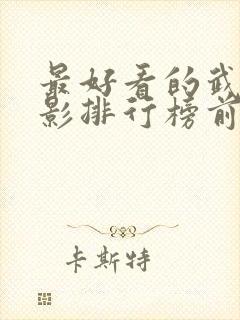 最好看的武
影排行榜前
卡斯特